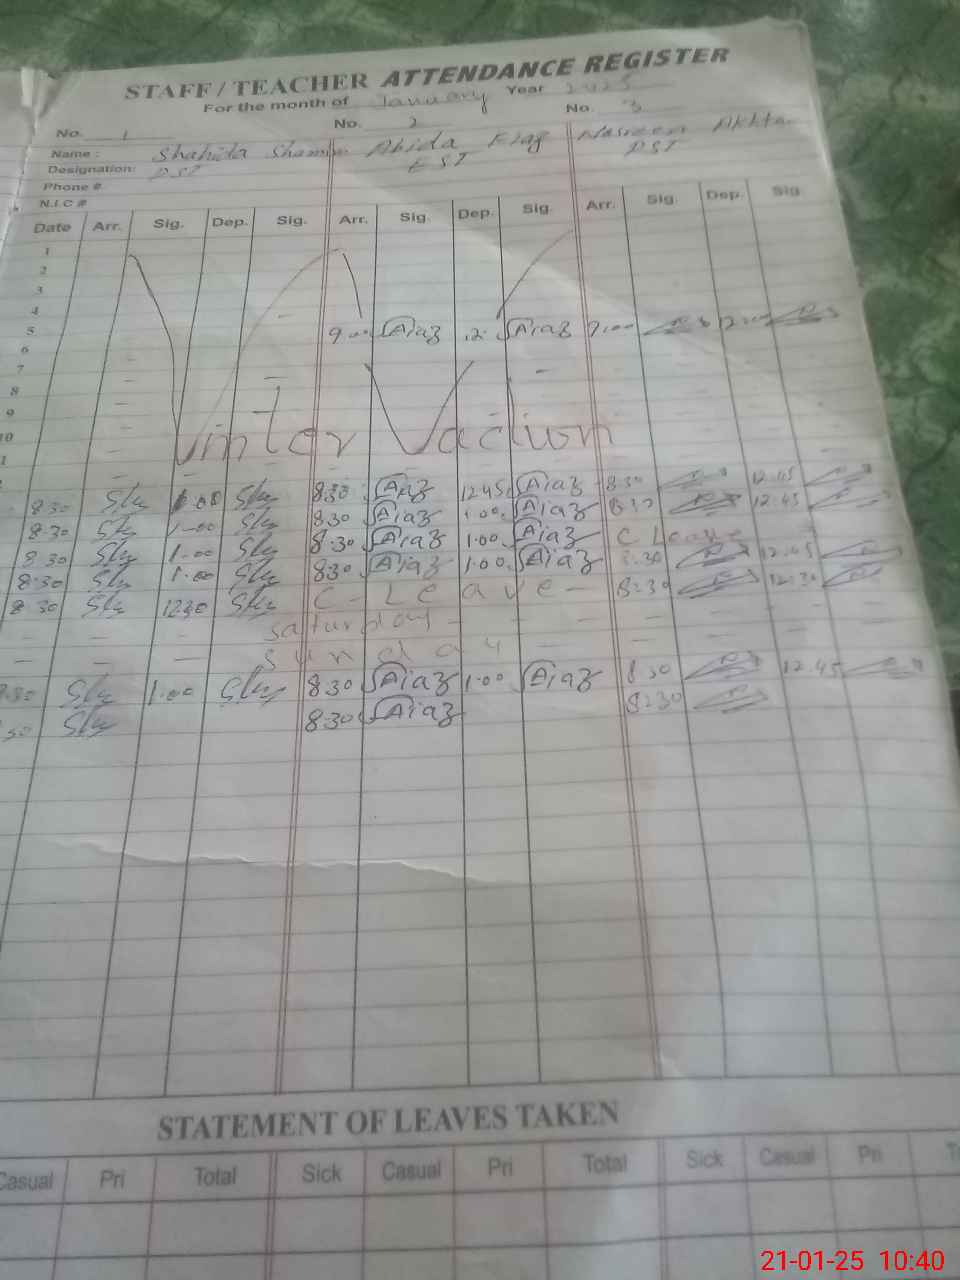 STAFF / TEACHER ATTENDANCE REGISTER
For the month of January Year 2025
No. 1 No. 2 No. 3
Name : Shahida Abida Nasreen Akhtar
Designation: PST EST PST
Phone #
N.I.C #
Date Arr. Sig. Dep. Sig. Arr. Sig. Dep. Sig. Arr. Sig. Dep. Sig.
1
2
3
4
5 9.00 Aiaz 12 Aiaz 9.00 12.00
6
7
8
9
10
Winter Vaction
8 30 1.00 8:30 Aiaz 12 45 Aiaz 8.30 12.45
8.30 1.00 8.30 Aiaz 1.00 Aiaz 8.30 12.45
8.30 1.00 8.30 Aiaz 1.00 Aiaz C Leave
8:30 1.00 8:30 Aiaz 1.00 Aiaz 8.30 12.45
8 30 1230 C - Leave - 8:30 12.30
Saturday
Sunday
8.30 1.00 8.30 Aiaz 1.00 Aiaz 8 30 12.45
8:30 Aiaz 8:30
STATEMENT OF LEAVES TAKEN
Casual Pri Total Sick Casual Pri Total Sick Casual Pri
21-01-25 10:40